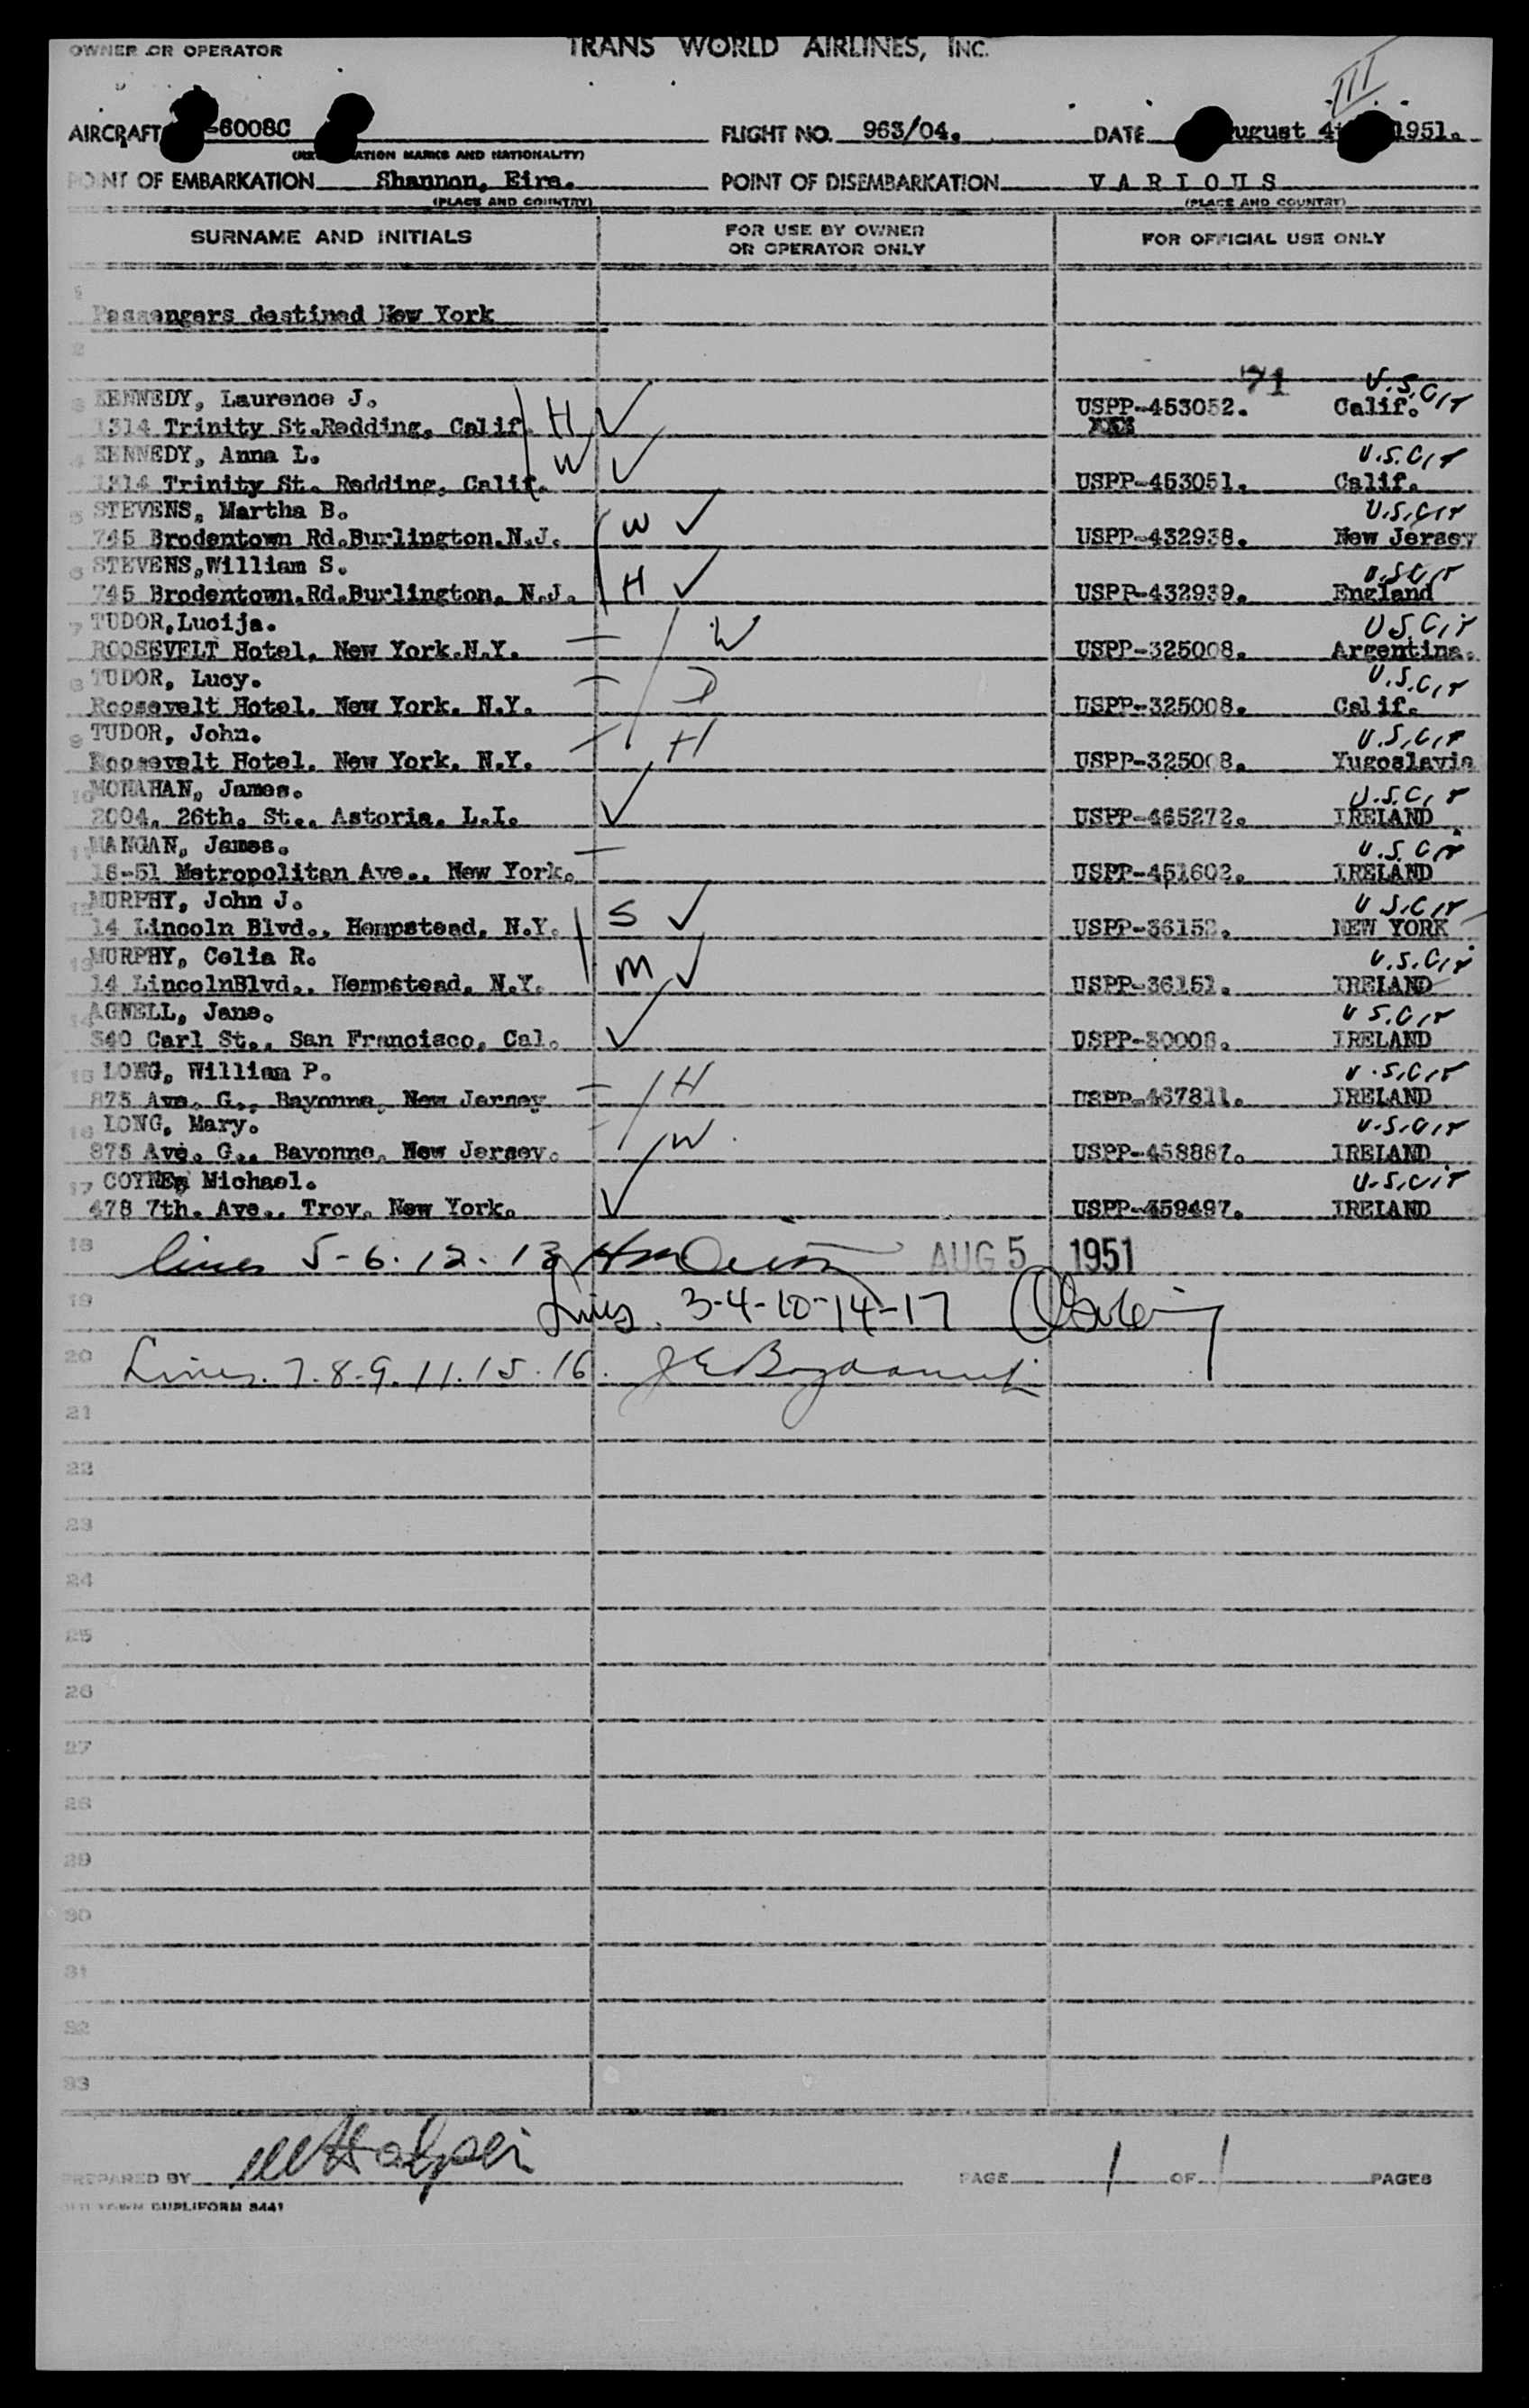 OWNER OR OPERATOR TRANS WORLD AIRLINES, INC.
III
AIRCRAFT -6008C FLIGHT NO. 963/04. DATE ugust 4t 1951.
(RE ATION MARKS AND NATIONALITY)
POINT OF EMBARKATION Shannon, Eire. POINT OF DISEMBARKATION VARIOUS
(PLACE AND COUNTRY) (PLACE AND COUNTRY)
SURNAME AND INITIALS FOR USE BY OWNER OR OPERATOR ONLY FOR OFFICIAL USE ONLY
1
Passengers destined New York
2
71
3 KENNEDY, Laurence J. H ✓ USPP-453052. Calif. U.S.Cit
1314 Trinity St.Redding, Calif. XXX
4 KENNEDY, Anna L. W ✓ U.S.Cit
1314 Trinity St. Redding, Calif. USPP-453051. Calif.
5 STEVENS, Martha B. W ✓ U.S.Cit
745 Brodentown Rd.Burlington.N.J. USPP-432938. New Jersey
6 STEVENS,William S. H ✓ U.S.Cit
745 Brodentown.Rd.Burlington, N.J. USPP-432939. England
7 TUDOR,Lucija. W U.S.Cit
ROOSEVELT Hotel, New York.N.Y. USPP-325008. Argentina.
8 TUDOR, Lucy. D U.S.Cit
Roosevelt Hotel, New York, N.Y. USPP-325008. Calif.
9 TUDOR, John. H U.S.Cit
Roosevelt Hotel, New York, N.Y. USPP-325008. Yugoslavia
10 MONAHAN, James. ✓ U.S.Cit
2004, 26th. St., Astoria, L.I. USPP-465272. IRELAND
11 MANGAN, James. U.S.Cit
16-51 Metropolitan Ave., New York. USPP-451602. IRELAND
12 MURPHY, John J. S ✓ U.S.Cit
14 Lincoln Blvd., Hempstead, N.Y. USPP-36152. NEW YORK
13 MURPHY, Celia R. M ✓ U.S.Cit
14 LincolnBlvd., Hempstead, N.Y. USPP-36151. IRELAND
14 AGNELL, Jane. ✓ U.S.Cit
340 Carl St., San Francisco, Cal. USPP-30008. IRELAND
15 LONG, William P. H U.S.Cit
875 Ave. G., Bayonne, New Jersey USPP-467811. IRELAND
16 LONG, Mary. W U.S.Cit
875 Ave. G., Bayonne, New Jersey. USPP-458887. IRELAND
17 COYNE, Michael. ✓ U.S.Cit
478 7th. Ave., Troy, New York. USPP-359497. IRELAND
18 lines 5-6.12.13 AUG 5 1951
19 Lines. 3-4-10-14-17
20 Lines. 7.8.9.11.15.16.
21
22
23
24
25
26
27
28
29
30
31
32
33
PREPARED BY PAGE 1 OF 1 PAGES
OLD TOWN DUPLIFORM 8441